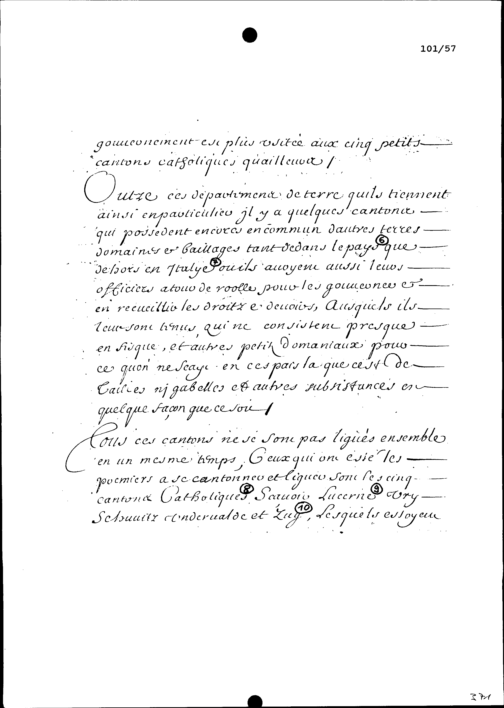 101/57
gouuernement est plus usitée aux cinq petits
cantons catholiques qu'ailleurs /
Outre ces departemens de terre quils tiennent
ainsi en particulier Il y a quelques cantons
qui possedent encores en commun dautres terres
domaines et bailages tant dedans le pays 6 que
dehors en Italye 7 ou ils enuoyent aussi leurs
officiers a tour de roolle pour les gouuerner et
en recueillir les droitz et deuoirs, Ausquels ils
leur sont tenus, qui ne consistent presques
en fisque, et autres petitz domaniaux pour
ce quon ne scayt en ces pais la que cest de
tailles nj gabelles et autres subsistances en
quelque facon que ce soit /
Tous ces cantons ne se sont pas ligués ensemble
en un mesme temps, Ceux qui ont esté les
premiers a se cantonner et liguer sont les cinq
cantons Catholiques 8 Scauoir Lucerne 9 Vry
Schuuitz Underualde et Zug 10, Lesquels estoyent
371